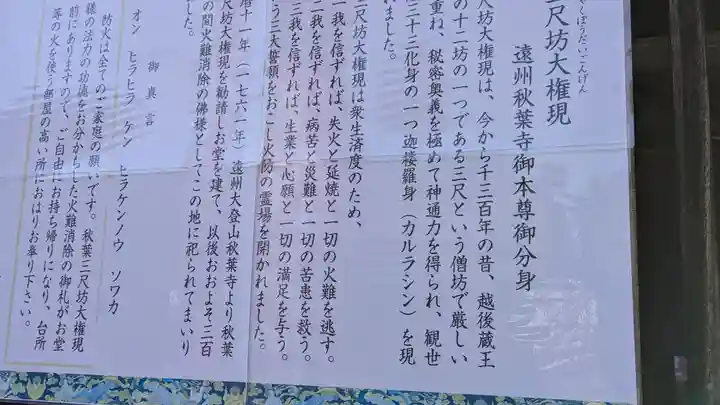 三尺坊大権現
遠州秋葉寺御本尊御分身
尺坊大権現は、今から千三百年の昔、越後蔵王
の十二坊の一つである三尺という僧坊で厳しい
重ね、秘密奥義を極めて神通力を得られ、観世
三十三化身の一つ迦楼羅身（カルラシン）を現
れました。
三尺坊大権現は衆生済度のため、
一我を信ずれば、失火と延焼と一切の火難を逃す。
二我を信ずれば、病苦と災難と一切の苦患を救う。
三我を信ずれば、生業と心願と一切の満足を与う。
う三大誓願をおこし火防の霊場を開かれました。
暦十一年（一七六一年）遠州大登山秋葉寺より秋葉
尺坊大権現を勧請しお堂を建て、以後おおよそ二百
の間火難消除の佛様としてこの地に祀られてまいり
した。
御真言
オン ヒラヒラ ケン ヒラケンノウ ソワカ
防火は全てのご家庭の願いです。秋葉三尺坊大権現
様の法力の功徳をお分かちした火難消除の御札がお堂
前にありますので、ご自由にお持ち帰りになり、台所
等の火を使う部屋の高い所におはりお奉り下さい。